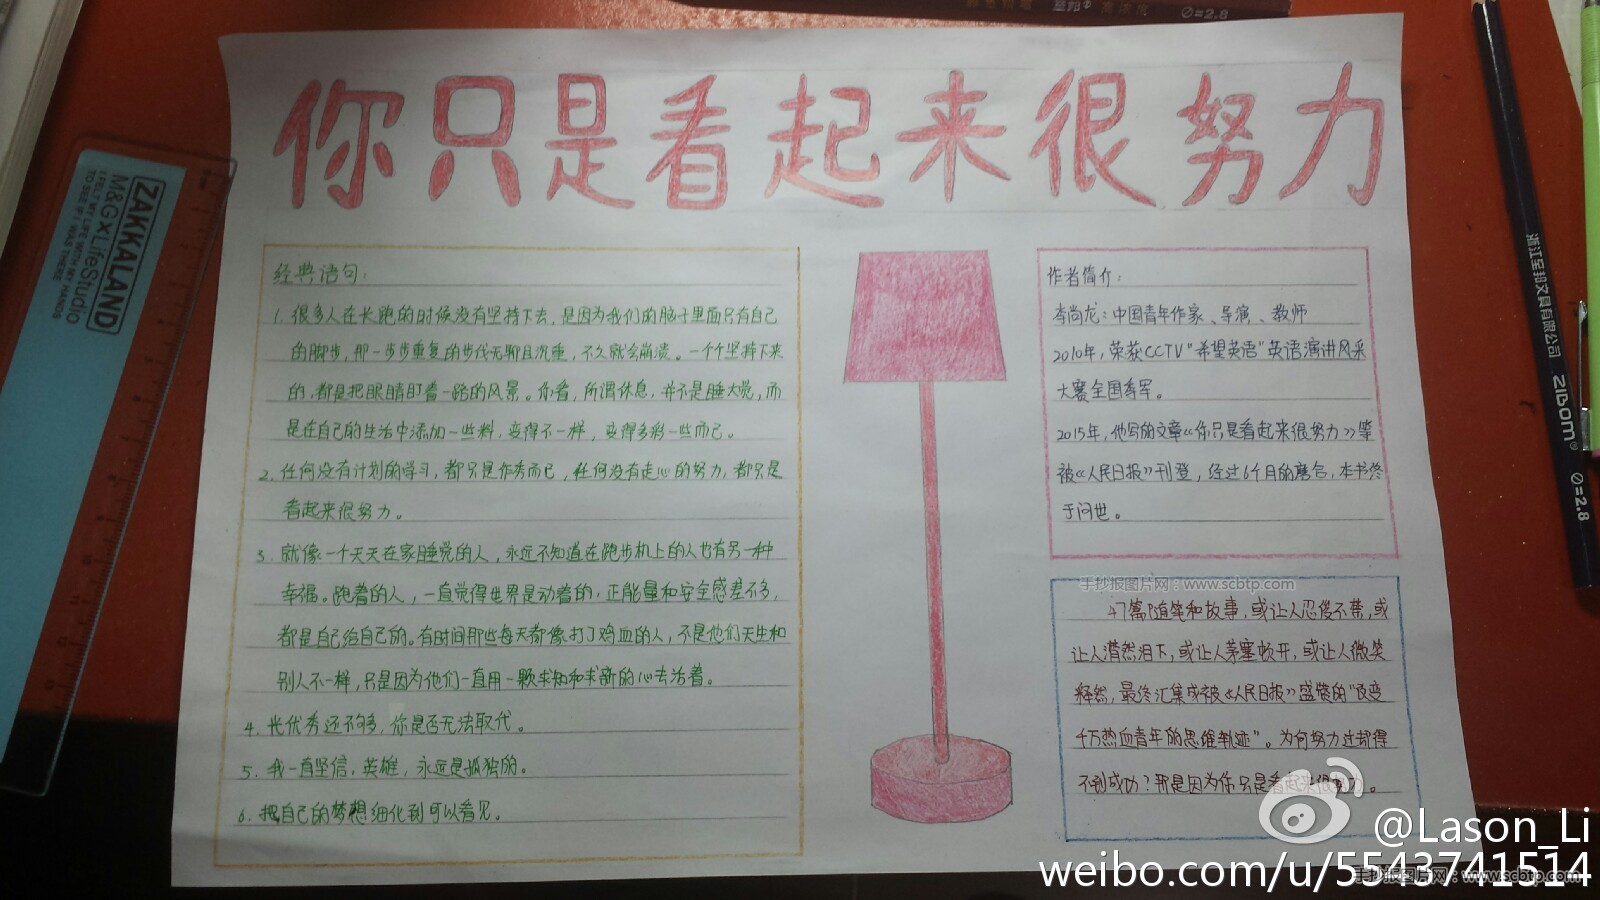 你只是看起来很努力
经典语句:
1. 很多人在长跑的时候没有坚持下去,是因为我们的脑子里面只有自己
的脚步,那一步步重复的步伐无聊且沉重,不久就会崩溃。一个个坚持下来
的,都是把眼睛盯着一路的风景。你看,所谓休息,并不是睡大觉,而
是在自己的生活中添加一些料,变得不一样,变得多彩一些而已。
2. 任何没有计划的学习,都只是作秀而已,任何没有走心的努力,都只是
看起来很努力。
3. 就像一个天天在家睡觉的人,永远不知道在跑步机上的人也有另一种
幸福。跑着的人,一直觉得世界是动着的,正能量和安全感差不多,
都是自己给自己的。有时间那些每天都像打了鸡血的人,不是他们天生和
别人不一样,只是因为他们一直用一颗求知和求新的心去活着。
4. 光优秀还不够,你是否无法取代。
5. 我一直坚信,英雄,永远是孤独的。
6. 把自己的梦想细化到可以看见。
作者简介:
李尚龙:中国青年作家、导演、教师
2010年,荣获CCTV"希望英语"英语演讲风采
大赛全国季军。
2015年,他写的文章《你只是看起来很努力》等
被《人民日报》刊登,经过6个月的磨合,本书终
于问世。
手抄报图片网:www.scbtp.com
47篇随笔和故事,或让人忍俊不禁,或
让人潸然泪下,或让人茅塞顿开,或让人微笑
释然,最终汇集成被《人民日报》盛赞的"改变
千万热血青年的思维轨迹"。为何努力过却得
不到成功?那是因为你只是看起来很努力。
ZAKKALAND
M&G×LifeStudio
I FELT MY LIFE WITH MY HANDS
TO SEE IF I WAS THERE
∅=2.8
浙江至邦文具有限公司 ZIBOM ∅=2.8
@Lason_Li
weibo.com/u/5543741514
手抄报图片网:www.scbtp.com